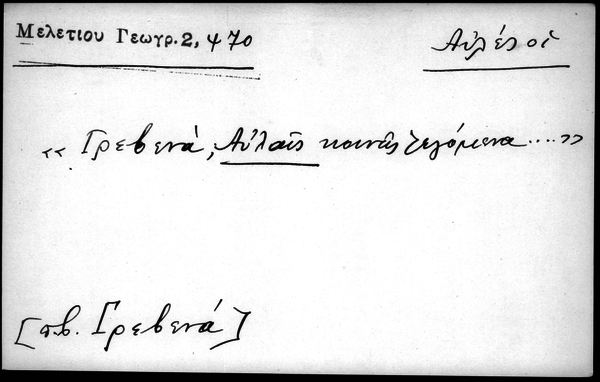 Μελετίου Γεωγρ. 2, 470
Αὐλές οἱ
«Γρεβενά, Αὐλαῖς κοινῶς λεγόμενα....»
[π.β. Γρεβενά]